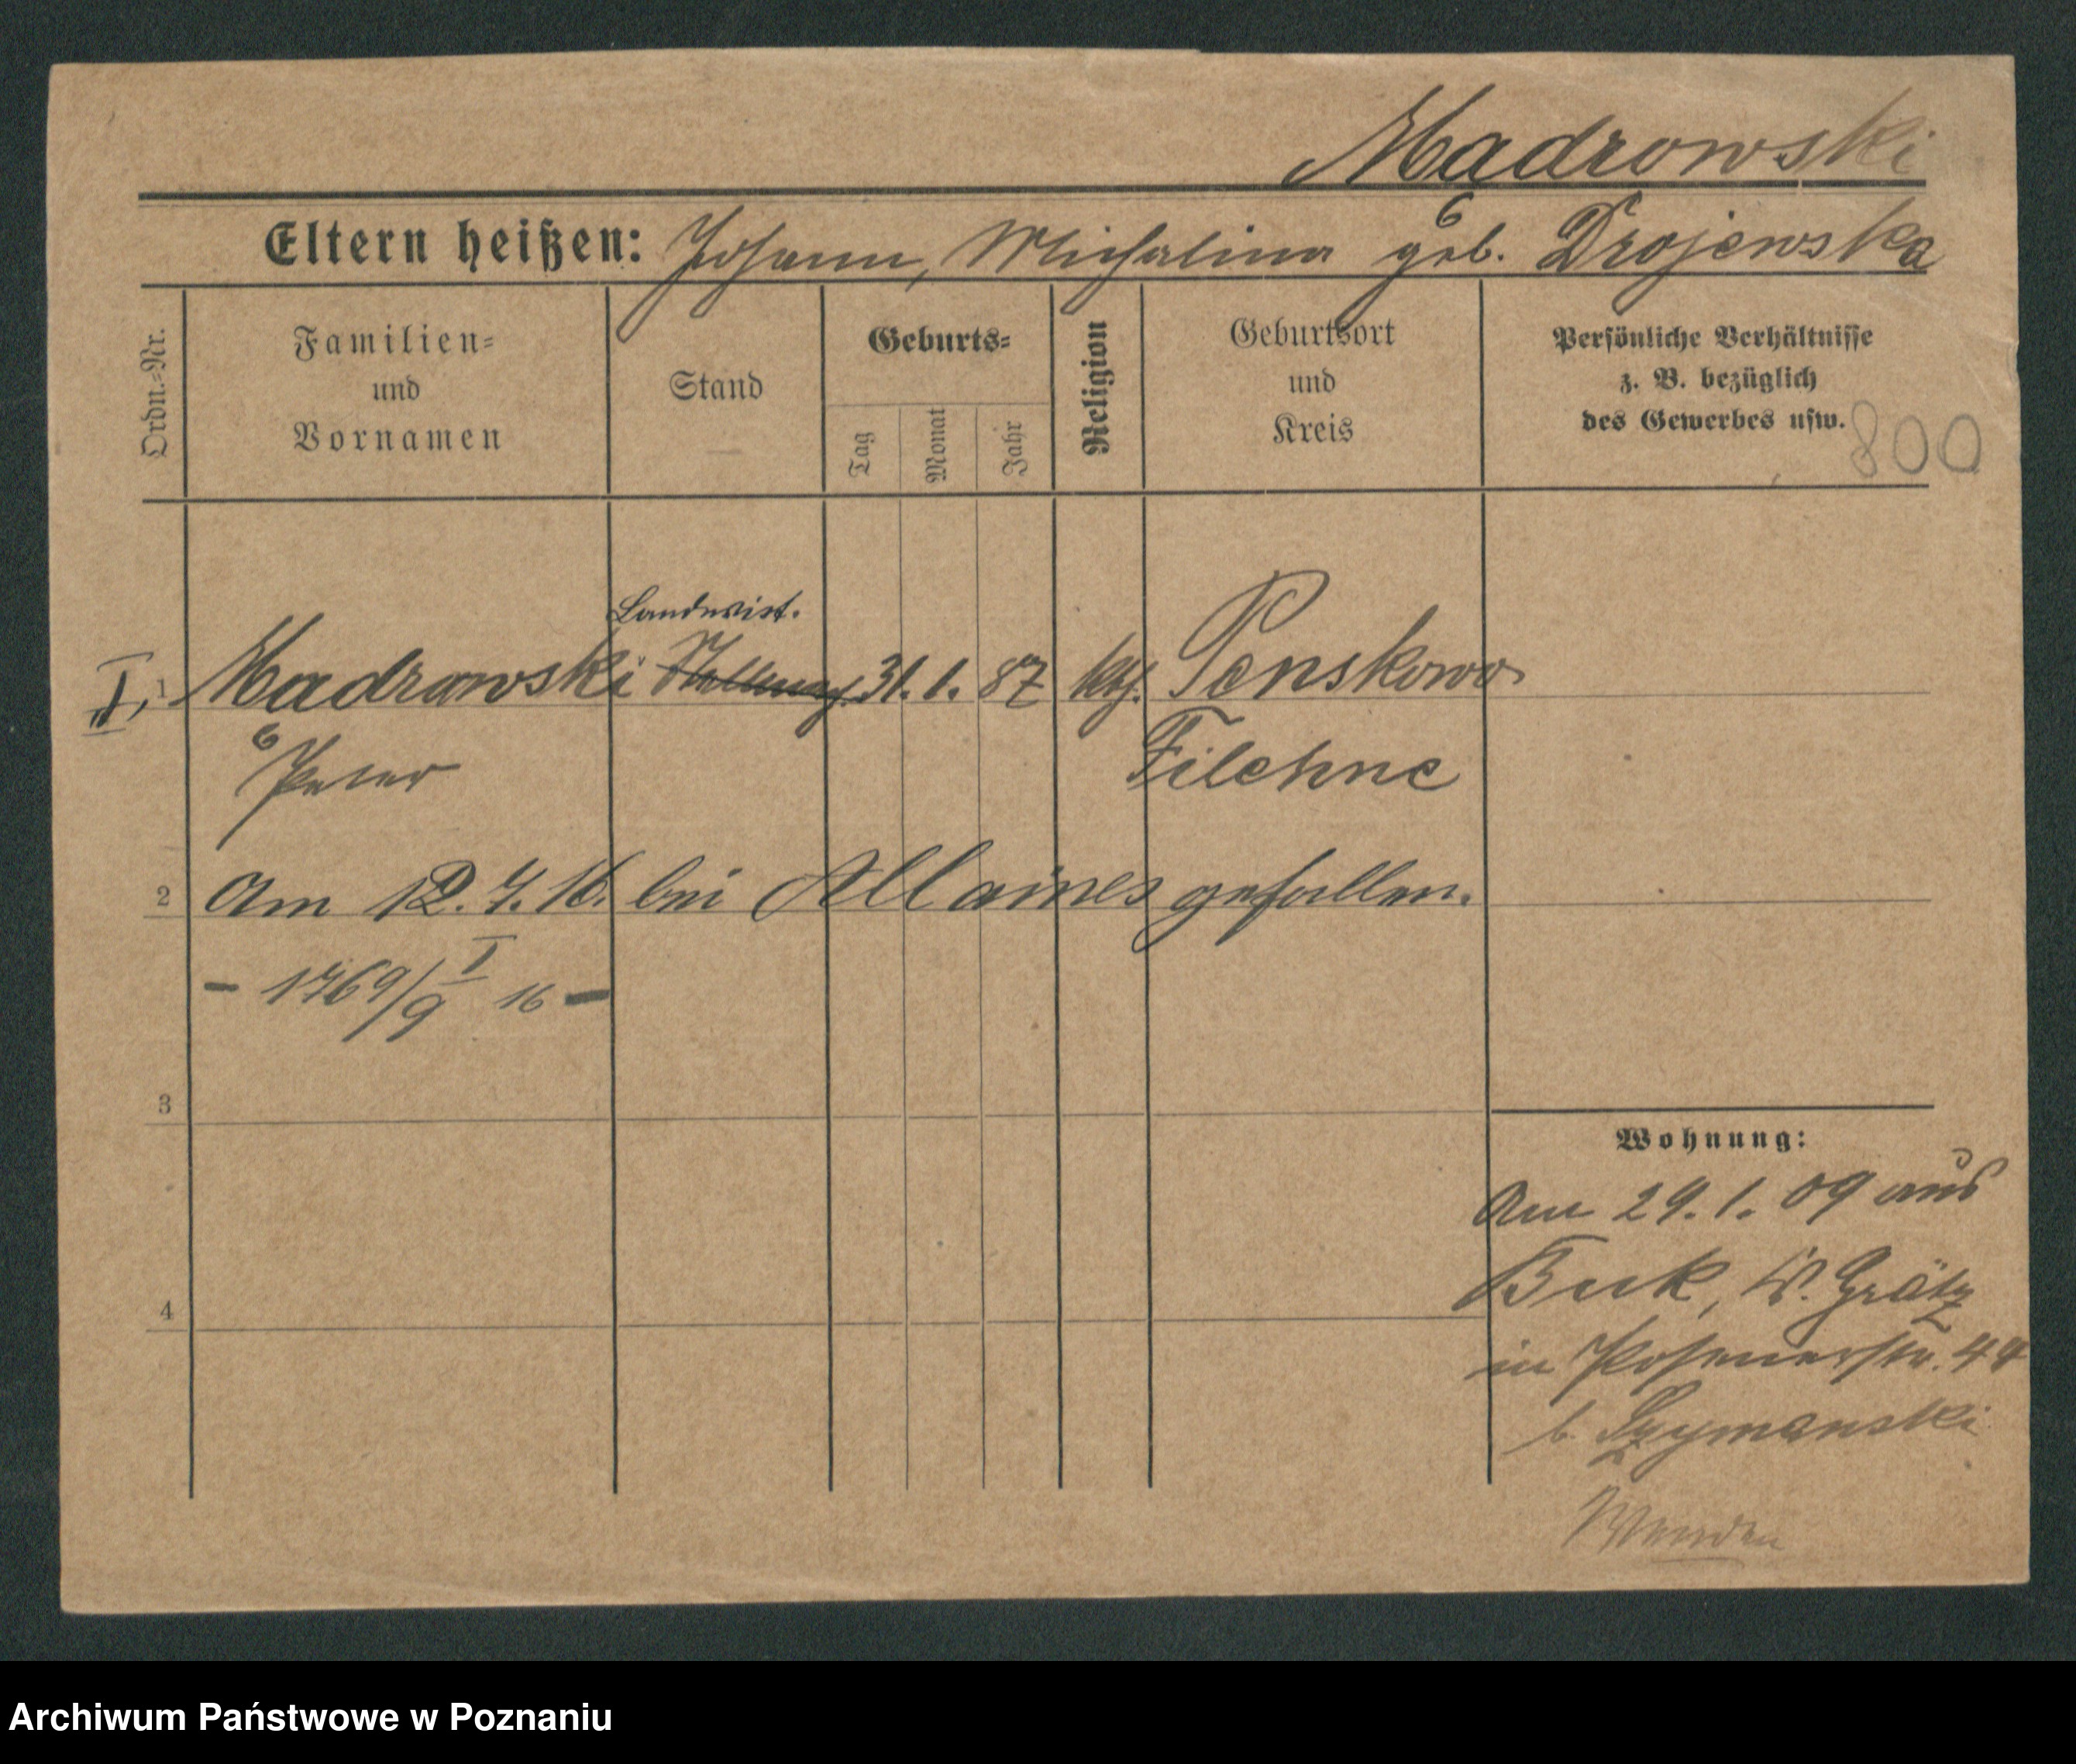 Madrowski
Eltern heißen: Johann, Michalina geb. Drojewska
Ordn.-Nr.
Familien-
und
Vornamen
Stand
Geburts-
Tag
Monat
Jahr
Religion
Geburtsort
und
Kreis
Persönliche Verhältnisse
z. B. bezüglich
des Gewerbes usw.
800
Landwirt.
I, 1 Madrowski 31. 1. 87 kth. Penskowo
Peter Filehne
2 Am 12. 7. 16. bei Allaines gefallen.
- 1769/9 I 16 -
3
Wohnung:
Am 29. 1. 09 aus
Buk, Kr. Grätz
4
in Posenerstr. 44
b. Szymanski
Wenden
Archiwum Państwowe w Poznaniu